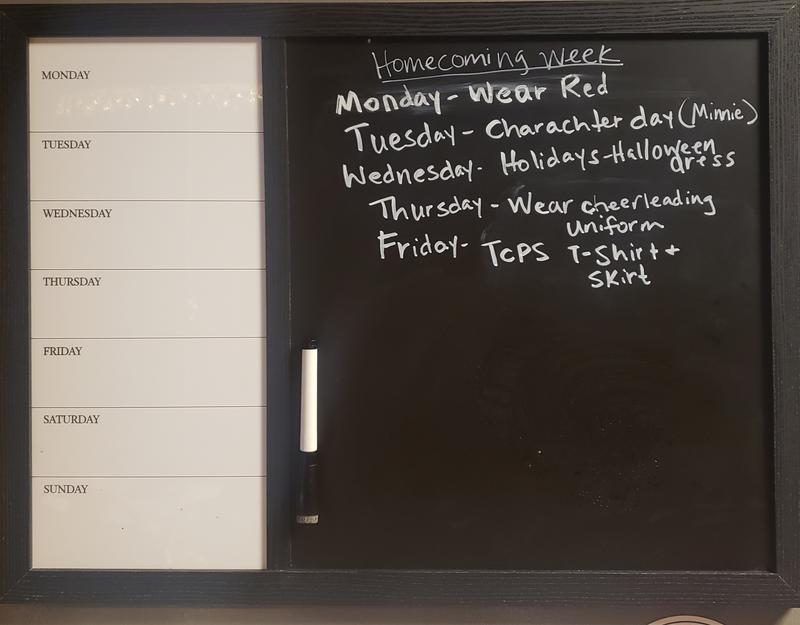 MONDAY
TUESDAY
WEDNESDAY
THURSDAY
FRIDAY
SATURDAY
SUNDAY
Homecoming Week
Monday- Wear Red
Tuesday- Charachter day (Minnie)
Wednesday- Holidays-Halloween
dress
Thursday- Wear cheerleading
uniform
Friday- TCPS T-Shirt +
Skirt